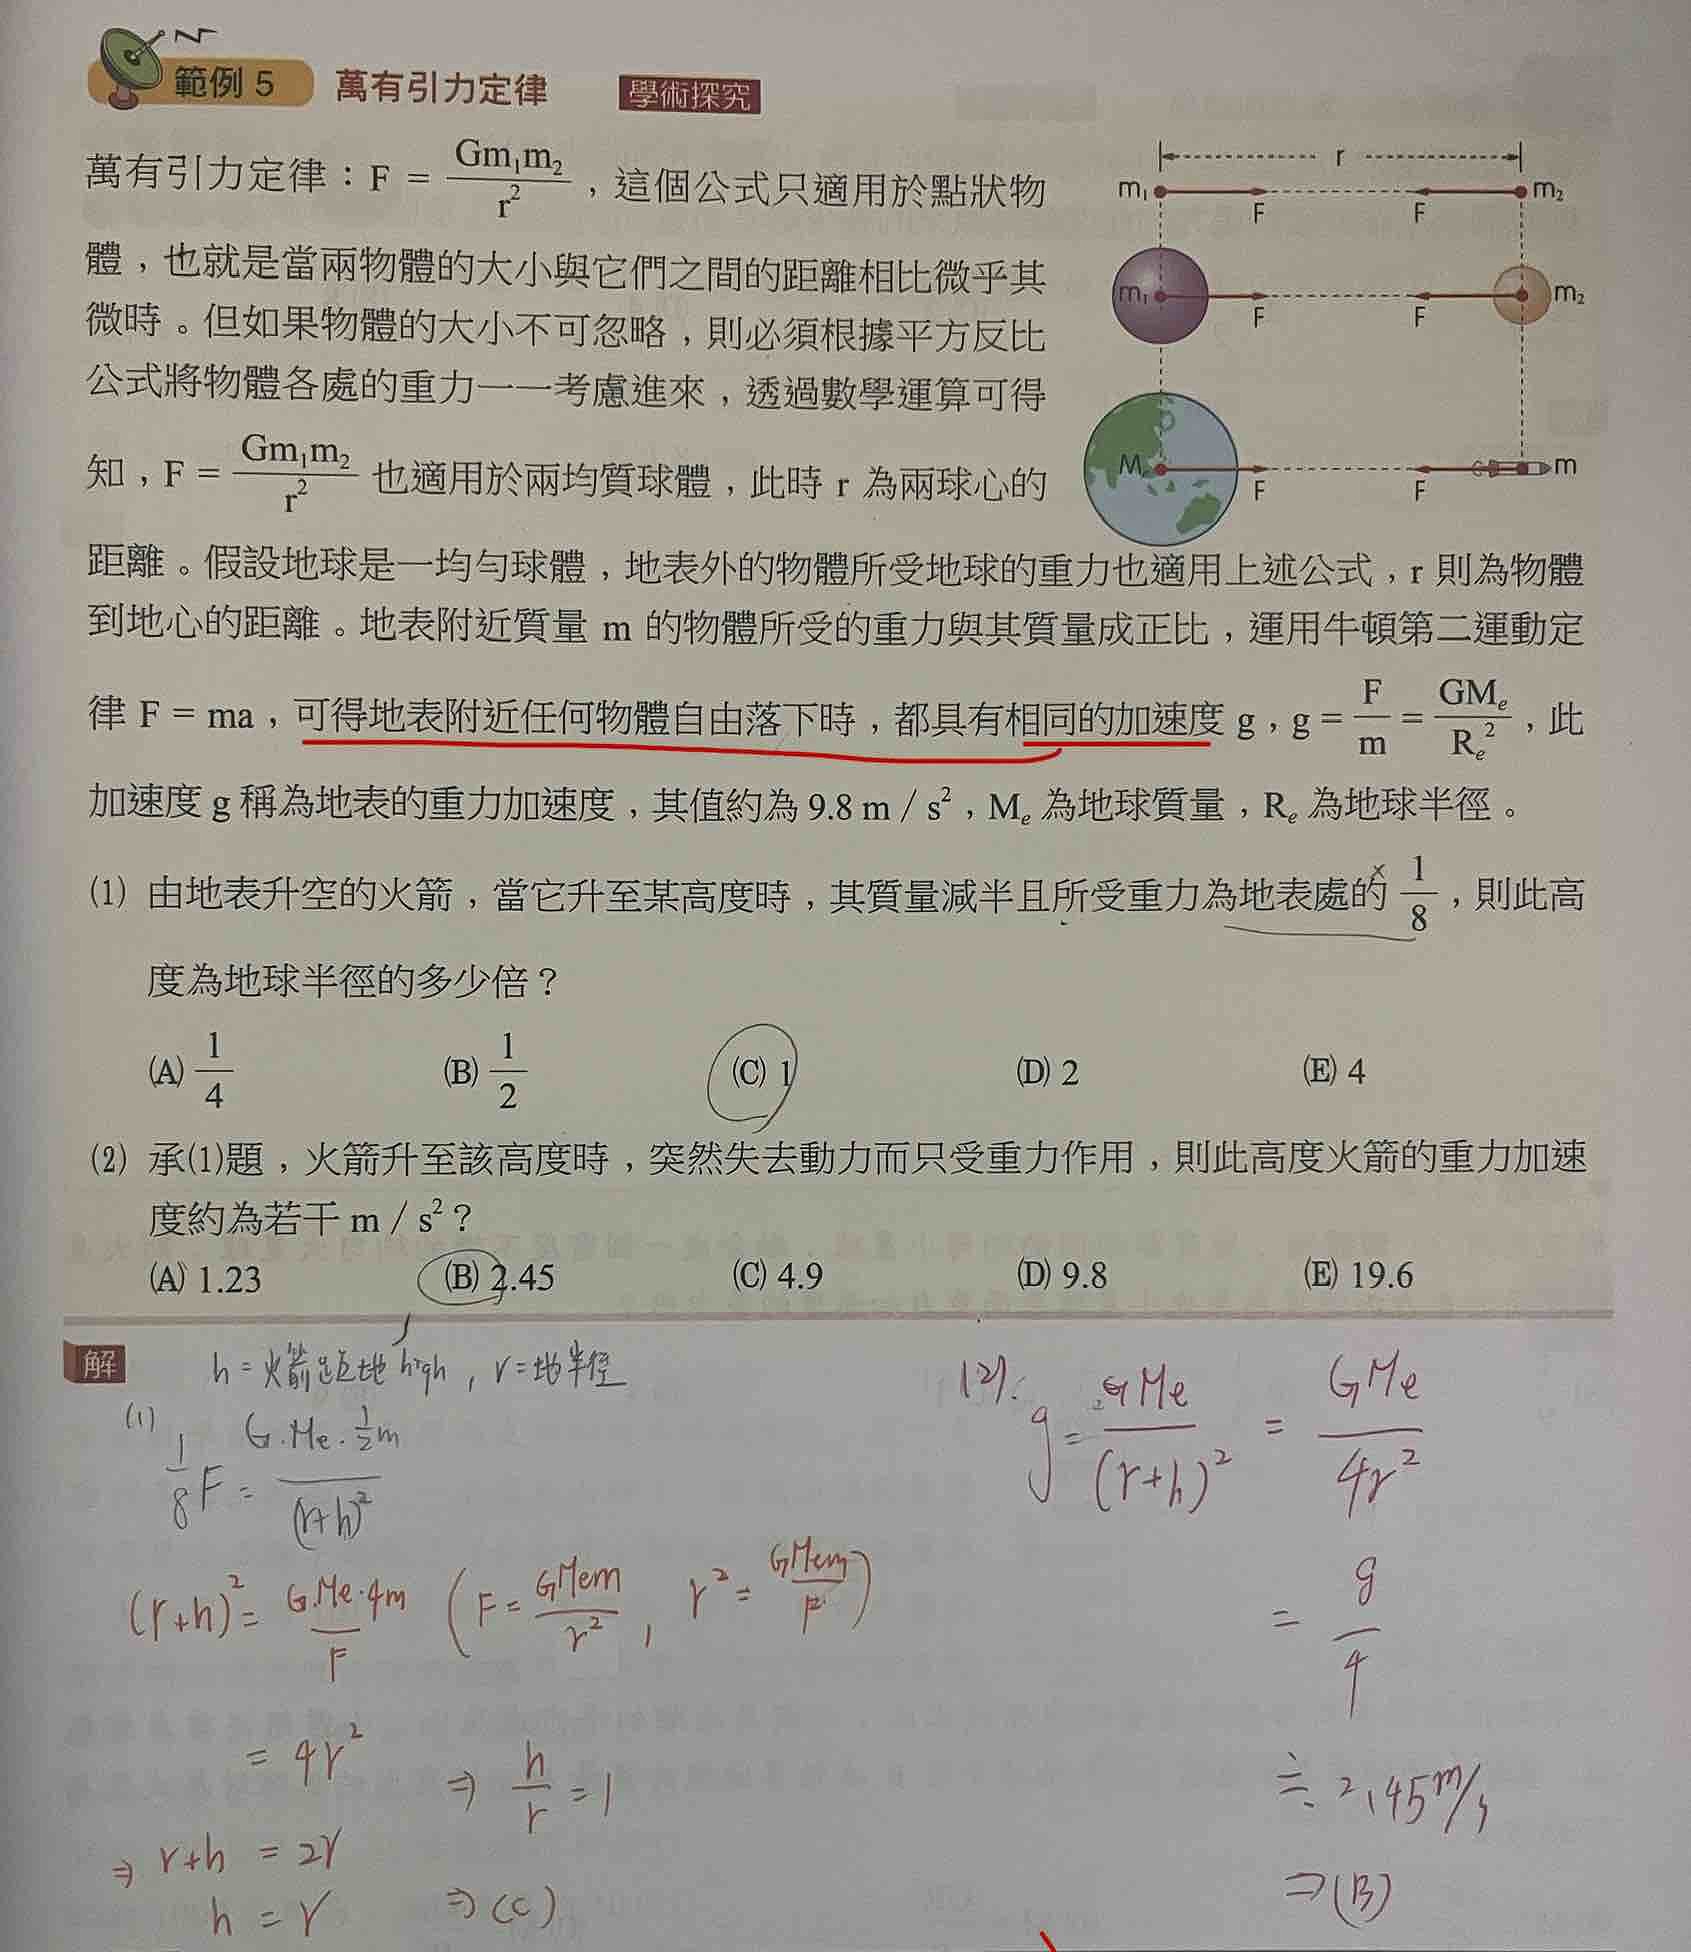 範例 5 萬有引力定律 學術探究
萬有引力定律：F = Gm₁m₂/r²，這個公式只適用於點狀物
體，也就是當兩物體的大小與它們之間的距離相比微乎其
微時。但如果物體的大小不可忽略，則必須根據平方反比
公式將物體各處的重力一一考慮進來，透過數學運算可得
知，F = Gm₁m₂/r² 也適用於兩均質球體，此時 r 為兩球心的
距離。假設地球是一均勻球體，地表外的物體所受地球的重力也適用上述公式，r 則為物體
到地心的距離。地表附近質量 m 的物體所受的重力與其質量成正比，運用牛頓第二運動定
律 F = ma，可得地表附近任何物體自由落下時，都具有相同的加速度 g，g = F/m = GMₑ/Rₑ²，此
加速度 g 稱為地表的重力加速度，其值約為 9.8 m / s²，Mₑ 為地球質量，Rₑ 為地球半徑。
r
m₁ F F m₂
m₁ F F m₂
Mₑ F F m
(1) 由地表升空的火箭，當它升至某高度時，其質量減半且所受重力為地表處的 1/8，則此高
度為地球半徑的多少倍？
(A) 1/4 (B) 1/2 (C) 1 (D) 2 (E) 4
(2) 承(1)題，火箭升至該高度時，突然失去動力而只受重力作用，則此高度火箭的重力加速
度約為若干 m / s²？
(A) 1.23 (B) 2.45 (C) 4.9 (D) 9.8 (E) 19.6
解
h = 火箭距地 high, r = 地半徑
(1) 1/8 F = G·Me·½m/(r+h)²
(r+h)² = G·Me·4m/F (F = GMem/r², r² = GMem/F)
= 4r² ⇒ h/r = 1
⇒ r+h = 2r
h = r ⇒ (C)
(2). g = GMe/(r+h)² = GMe/4r²
= g/4
≒ 2.45 m/s
⇒ (B)